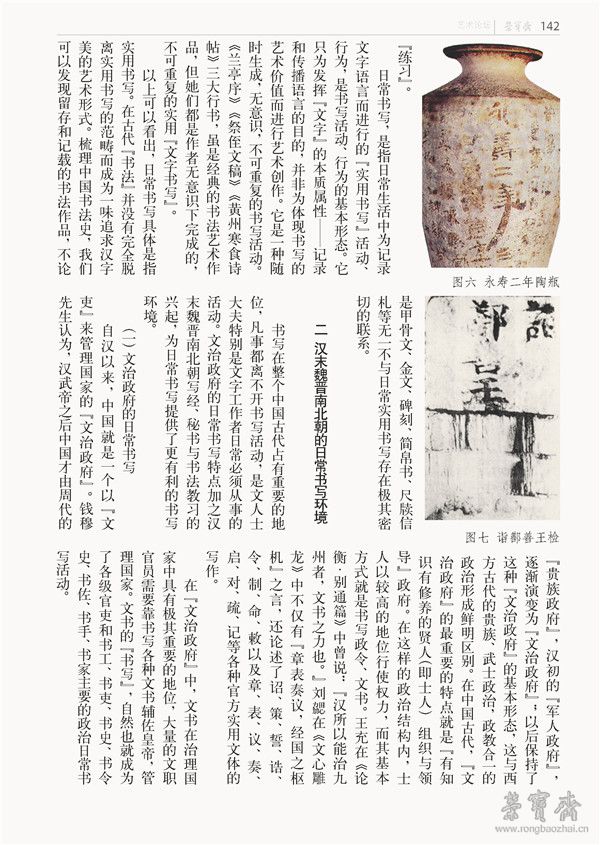 艺术论坛 荣宝斋 142
『练习』。
日常书写，是指日常生活中为记录
文字语言而进行的『实用书写』活动、
行为，是书写活动、行为的基本形态。它
只为发挥『文字』的本质属性——记录
和传播语言的目的，并非为体现书写的
艺术价值而进行艺术创作。它是一种随
时生成，无意识、不可重复的书写活动。
《兰亭序》《祭侄文稿》《黄州寒食诗
帖》三大行书，虽是经典的书法艺术作
品，但她们都是作者无意识下完成的，
不可重复的实用『文字书写』。
以上可以看出，日常书写具体是指
实用书写。在古代『书法』并没有完全脱
离实用书写的范畴而成为一味追求汉字
美的艺术形式。梳理中国书法史，我们
可以发现留存和记载的书法作品，不论
图六 永寿二年陶瓶
是甲骨文、金文、碑刻、简帛书、尺牍信
札等无一不与日常实用书写存在极其密
切的联系。
二 汉末魏晋南北朝的日常书写环境
书写在整个中国古代占有重要的地
位，凡事都离不开书写活动，是文人士
大夫特别是文字工作者日常必须从事的
活动。文治政府的日常书写特点加之汉
末魏晋南北朝写经、秘书与书法教习的
兴起，为日常书写提供了更有利的书写
环境。
（一）文治政府的日常书写
自汉以来，中国就是一个以『文
吏』来管理国家的『文治政府』。钱穆
先生认为，汉武帝之后中国才由周代的
图七 诣鄯善王检
『贵族政府』，汉初的『军人政府』，
逐渐演变为『文治政府』；以后保持了
这种『文治政府』的基本形态，这与西
方古代的贵族、武士政治，政教合一的
政治形成鲜明区别。在中国古代，『文
治政府』的最重要的特点就是『有知
识有修养的贤人(即士人) 组织与领
导』政府。在这样的政治结构内，士
人以较高的地位行使权力，而其基本
方式就是书写政令、文书。王充在《论
衡·别通篇》中曾说：『汉所以能治九
州者，文书之力也。』刘勰在《文心雕
龙》中不仅有『章表奏议，经国之枢
机』之言，还论述了诏、策、誓、诰、
令、制、命、敕以及章、表、议、奏、
启、对、疏、记等各种官方实用文体的
写作。
在『文治政府』中，文书在治理国
家中具有极其重要的地位，大量的文职
官员需要靠书写各种文书辅佐皇帝，管
理国家。文书的『书写』，自然也就成为
了各级官吏和书工、书吏、书史、书令
史、书佐、书手、书家主要的政治日常书
写活动。
荣宝斋
www.rongbaozhai.cn